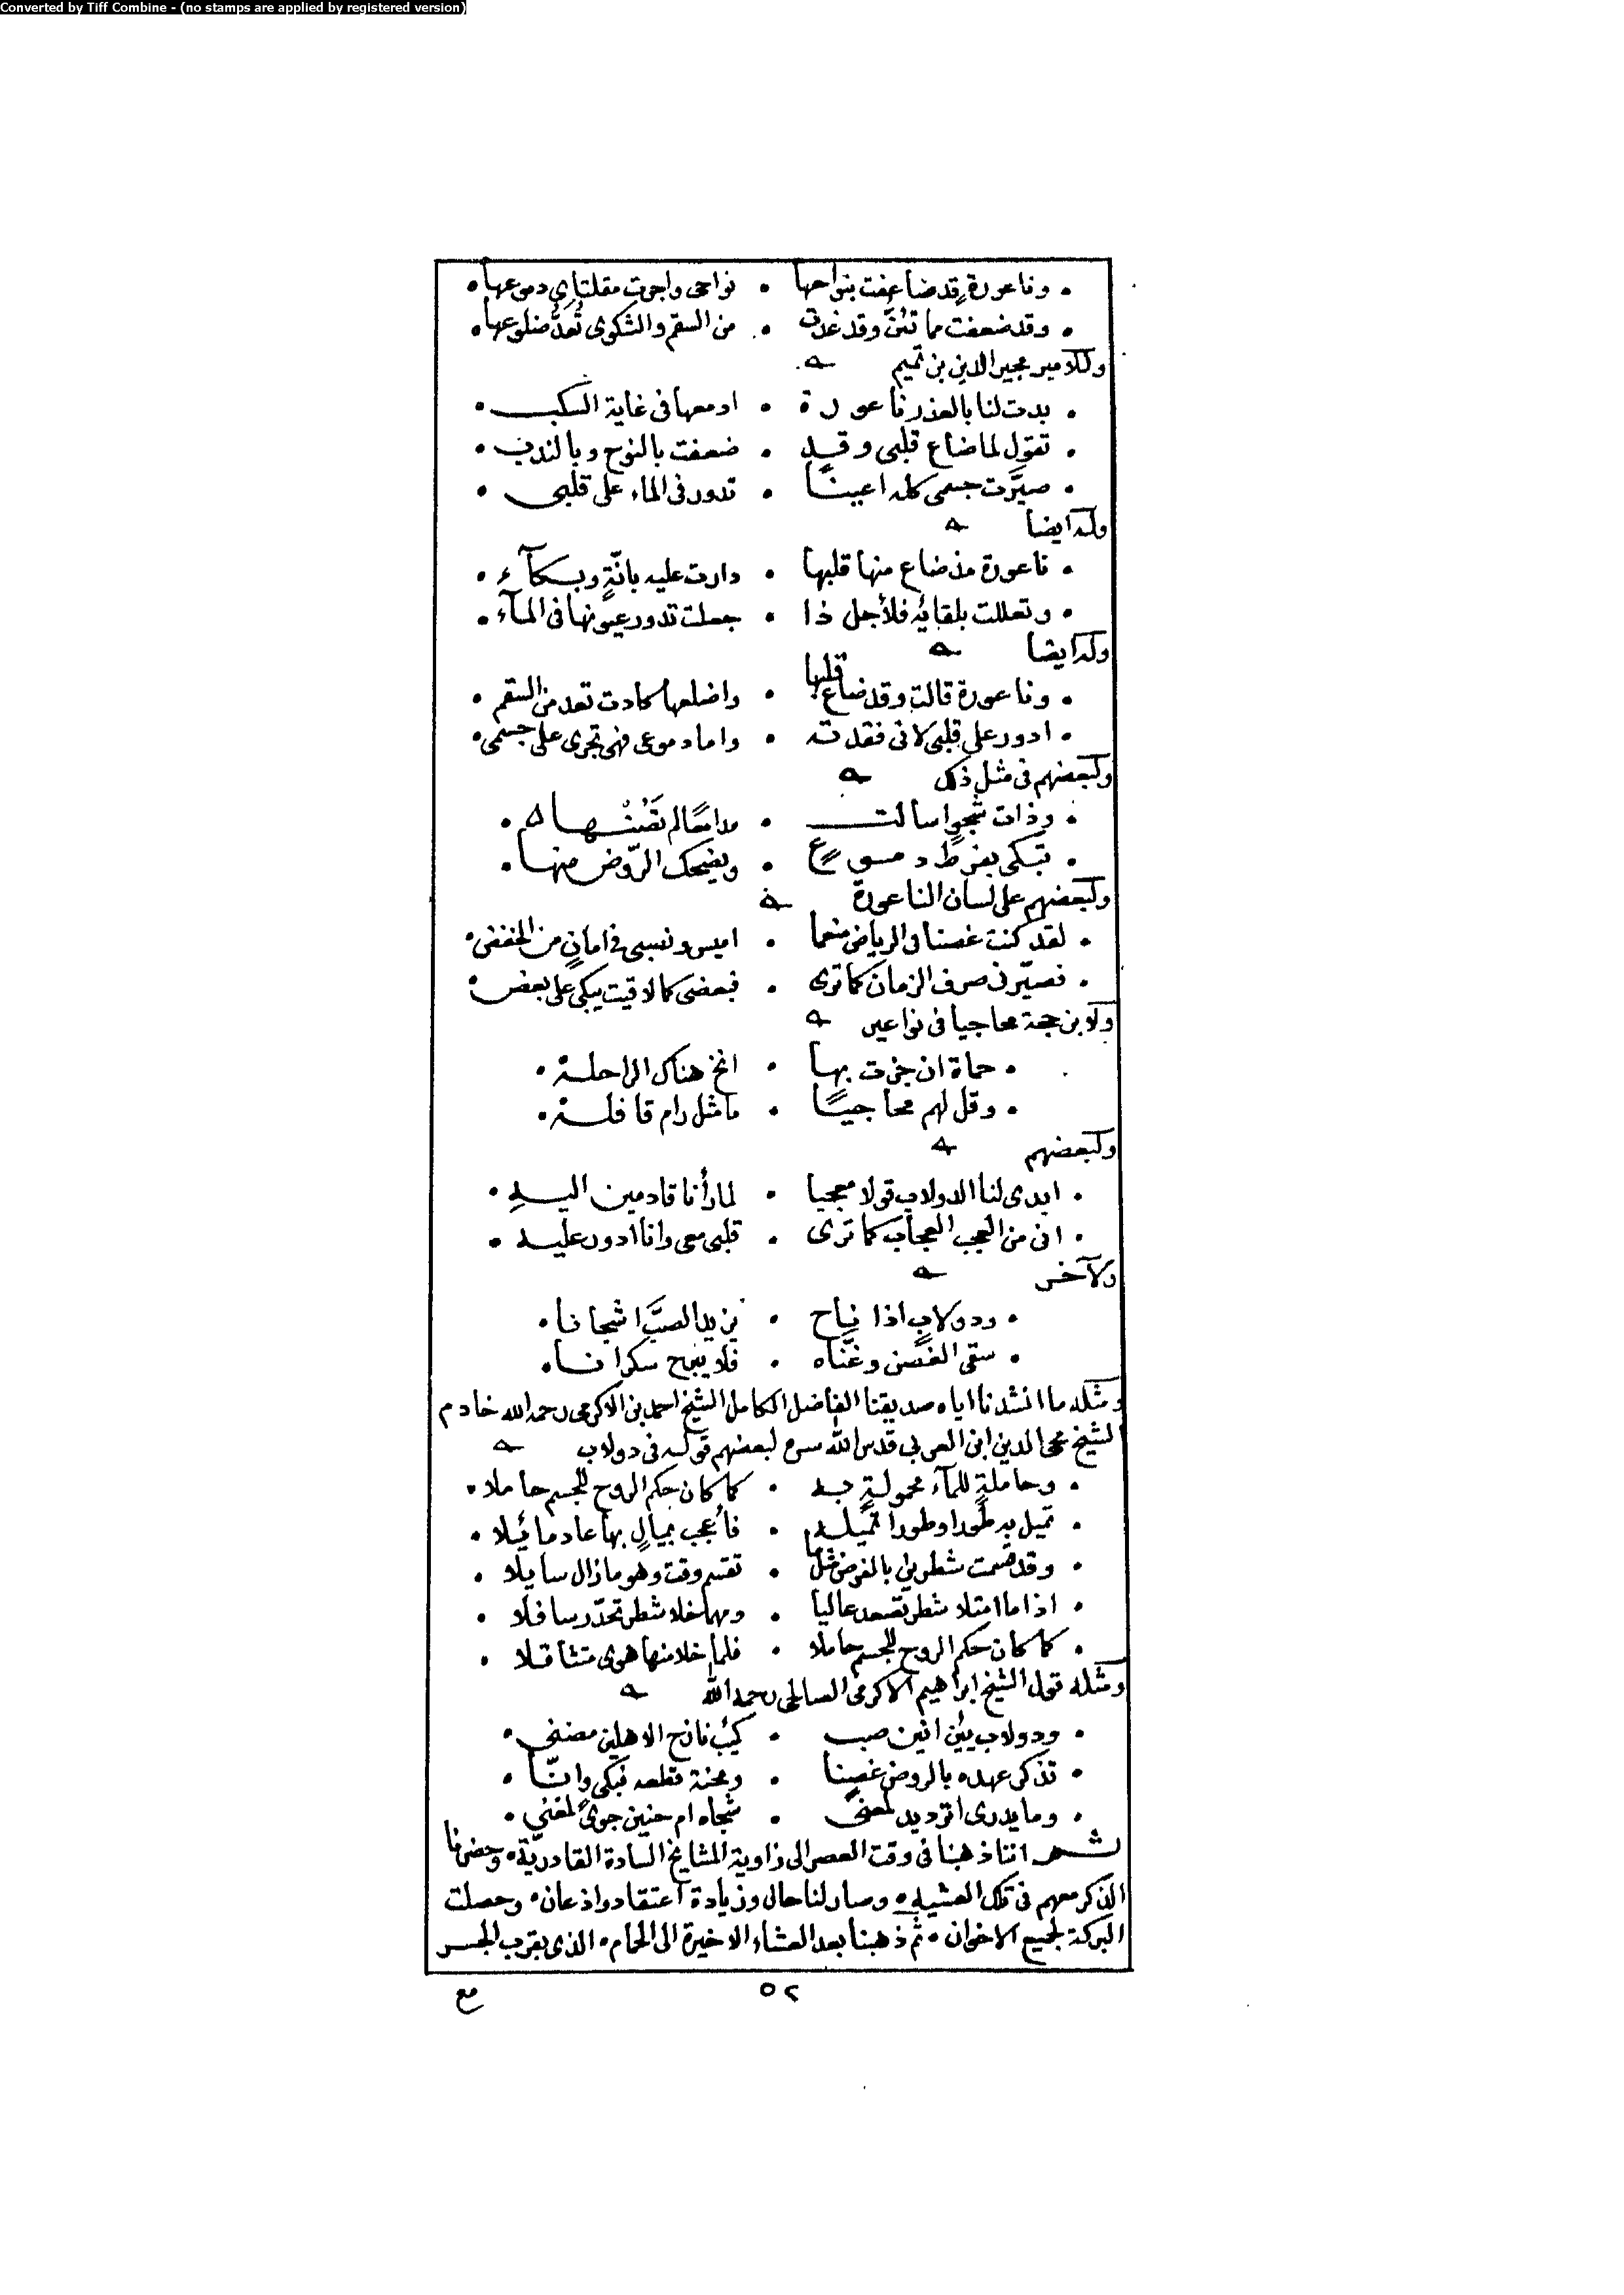 Converted by Tiff Combine - (no stamps are applied by registered version)
• وناعورةٍ قد ضاعفت بنواحها • نواحى واجرت مقلتاى دموعها •
• وقد ضعفت مما تئنّ وقد غدت • من السقم والشكوى تُعدُّ ضلوعها •
وللامير مجير الدين بن تميم
• بدت لنا بالعذر ناعورة • ادمعها فى غاية السكب •
• تقول لما ضاع قلبى وقد • ضعفت بالنوح وبالندب •
• صيَّرت جسمى كله اعينًا • تدور فى الماء على قلبى •
وله ايضا
• ناعورة مذ ضاع منها قلبها • دارت عليه بانّةٍ وبكآء •
• وتعللت بلقائه فلأجل ذا • جعلت تدور عيونها فى المآء •
وله ايضا
• وناعورة قالت وقد ضاع قلبها • واضلعها كادت تعد من السقم •
• ادور على قلبى لانى فقدته • واما دموعى فهى تجرى على جسمى •
ولبعضهم فى مثل ذلك
• وذات شجوٍ اسالت • مدامعًا لم تصُنْها •
• تبكى بفرط دموعٍ • ويضحك الرّوض منها •
ولبعضهم على لسان الناعورة
• لقد كنت غصنا فى الرياض منعما • اميس ونسبى فى امانٍ من الخفض •
• فصيّرنى صرف الزمان كما ترى • فبعضى كما لاقيت يبكى على بعض •
ولابن حجة محاجيا فى نواعير
• حماة ان جزت بها • انخ هناك الراحلة •
• وقل لهم محاجيًا • ما مثل رام قافلة •
ولبعضهم
• ابدى لنا الدولاب قولا معجبا • لما رأنا قادمين اليهِ •
• انى من العجب العجاب كما ترى • قلبى معى وانا ادور عليه •
ولآخر
• ودولابٍ اذا ناح • يزيد الصبَّ اشجانا •
• سقى الغصن وغنّاه • فلا يبرح سكرانا •
ومثله ما انشدنا اياه صديقنا الفاضل الكامل الشيخ احمد بن الاكرمى رحمه الله خادم
الشيخ محى الدين ابن العربى قدس الله سره لبعضهم قوله فى دولاب
• وحاملةٍ للمآء محمولةٍ به • كما كان حكم الروح للجسم حاملا •
• تميل به طورا وطورا تميله • فأعجب بميالٍ بها عاد مائلا •
• وقد قسمت شطرين بالفرض مثل ما • تقسم وقت وهو ما زال سايلا •
• اذا ما امتلا شطر تصعد عاليا • ومهما خلا شطر تحدّر سافلا •
• كما كان حكم الروح للجسم حاملا • فلما خلا منها هوى متثاقلا •
ومثله قول الشيخ ابراهيم الاكرمى الصالحى رحمه الله
• ودولاب يئن انين صب • كئيب نازح الاهلين مضنى •
• تذكر عهده بالروض غصنا • ومحنة قطعه فبكى وانّا •
• وما يدرى اترديد لمعنى • شجاه ام حنين جوىً لمغنى •
ثم اننا ذهبنا فى وقت العصر الى زاوية المشايخ السادة القادريّة • وحضرنا
الذكر معهم فى تلك العشيه • وصار لنا حال وزيادة اعتقاد واذعان • وحصلت
البركة لجميع الاخوان • ثم ذهبنا بعد العشاء الاخيرة الى الحمام • الذى بقرب الجسر
٥٢
مع